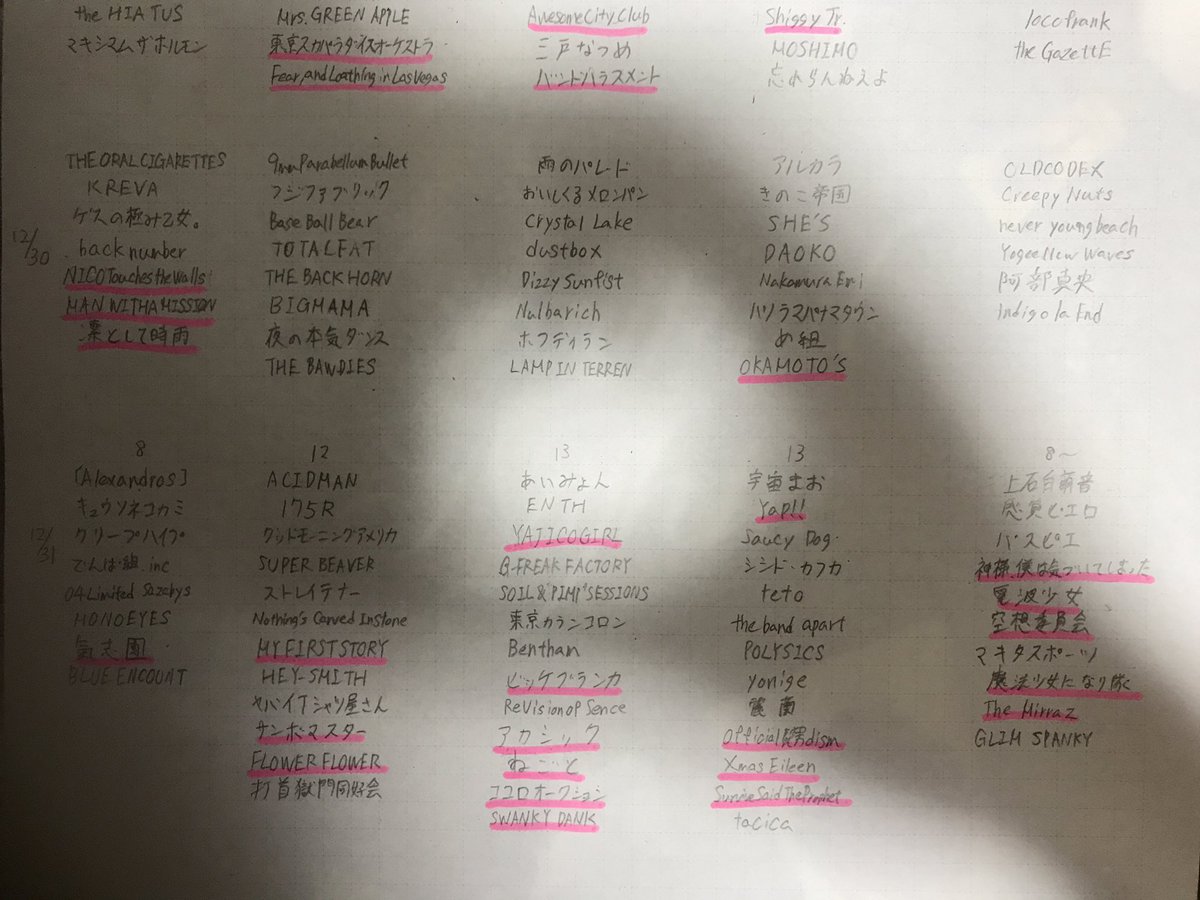 the HIATUS
マキシマム ザ ホルモン
Mrs. GREEN APPLE
東京スカパラダイスオーケストラ
Fear, and Loathing in Las Vegas
Awesome City Club
三戸なつめ
バンドハラスメント
Shiggy Jr.
MOSHIMO
忘れらんねえよ
locofrank
the GazettE
12/30
THE ORAL CIGARETTES
KREVA
ゲスの極み乙女。
back number
NICO Touches the Walls
MAN WITH A MISSION
凛として時雨
9mm Parabellum Bullet
フジファブリック
Base Ball Bear
TOTALFAT
THE BACK HORN
BIGMAMA
夜の本気ダンス
THE BAWDIES
雨のパレード
おいしくるメロンパン
Crystal Lake
dustbox
Dizzy Sunfist
Nulbarich
ホフディラン
LAMP IN TERREN
アルカラ
きのこ帝国
SHE'S
DAOKO
Nakamura Emi
パノラマパナマタウン
め組
OKAMOTO'S
OLDCODEX
Creepy Nuts
never young beach
Yogee New Waves
阿部真央
indigo la End
12/31
8
[Alexandros]
キュウソネコカミ
クリープハイプ
でんぱ組.inc
04 Limited Sazabys
MONOEYES
氣志團
BLUE ENCOUNT
12
ACIDMAN
175R
グッドモーニングアメリカ
SUPER BEAVER
ストレイテナー
Nothing's Carved In Stone
MY FIRST STORY
HEY-SMITH
ヤバイTシャツ屋さん
サンボマスター
FLOWER FLOWER
打首獄門同好会
13
あいみょん
ENTH
YAJICO GIRL
G-FREAK FACTORY
SOIL &"PIMP"SESSIONS
東京カランコロン
Benthan
ビッケブランカ
ReVision of Sence
アカシック
ねごと
ココロオークション
SWANKY DANK
13
宇宙まお
Yap!!
Saucy Dog
シシド・カフカ
teto
the band apart
POLYSICS
yonige
麗蘭
Official髭男dism
Xmas Eileen
Survive Said The Prophet
tacica
8〜
上白石萌音
感覚ピエロ
パスピエ
神様、僕は気づいてしまった
電波少女
空想委員会
マキタスポーツ
魔法少女になり隊
The Mirraz
GLIM SPANKY